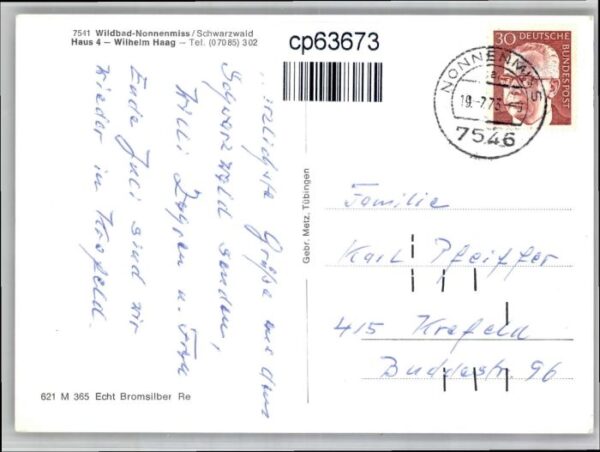 7541 Wildbad-Nonnenmiss/Schwarzwald
Haus 4 – Wilhelm Haag – Tel. (07085) 302
cp63673
30 DEUTSCHE BUNDESPOST
NONNENMISS
19.-7.73
7546
Grüße aus dem
Schwarzwald senden,
Willi u. Frau
Ende Juli sind wir
wieder in Krefeld.
Gebr. Metz, Tübingen
Familie
Karl Pfeiffer
415 Krefeld
Buddestr. 96
621 M 365 Echt Bromsilber Re